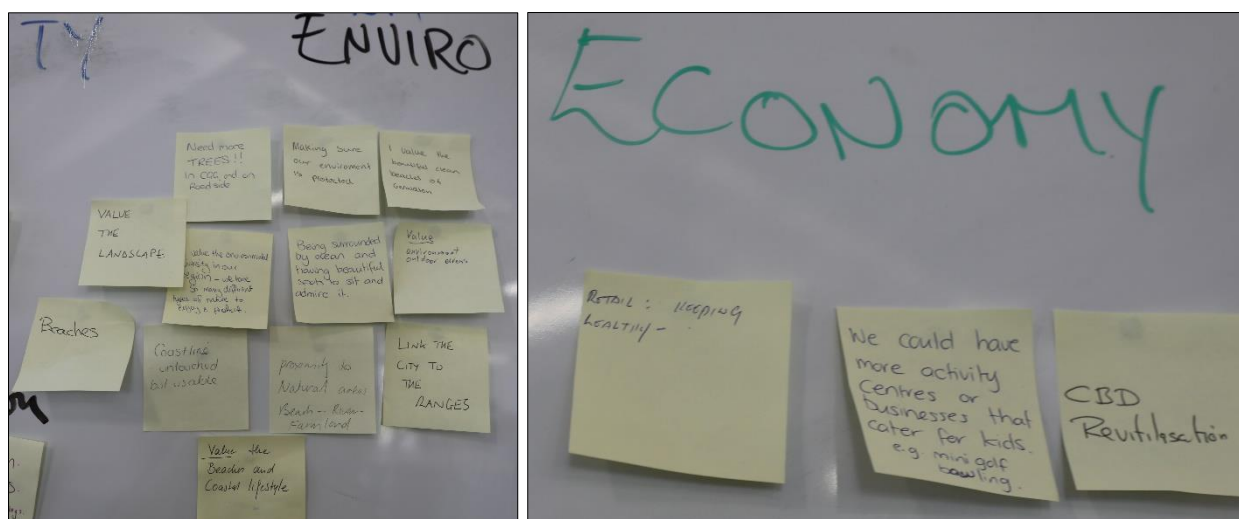 TY
ENVIRO
Need more
TREES!!
in CGG and on
Roadside
Making sure
our enviroment
is protected.
I value the
beautiful clean
beaches of
Geraldton
VALUE
THE
LANDSCAPE
value the environmental
in our
- we have
so many different
types of nature to
enjoy & protect.
Being surrounded
by ocean and
having beautiful
spots to sit and
admire it.
Value
environment
outdoor
Beaches
Coastline
untouched
but useable
proximity to
Natural areas
Beach - River -
Farmland
LINK THE
CITY TO
THE
RANGES
Value the
Beaches and
Coastal lifestyle
ECONOMY
RETAIL : KEEPING
HEALTHY -
We could have
more activity
Centres or
businesses that
cater for kids.
e.g. mini golf
bowling.
CBD
Revitilisation